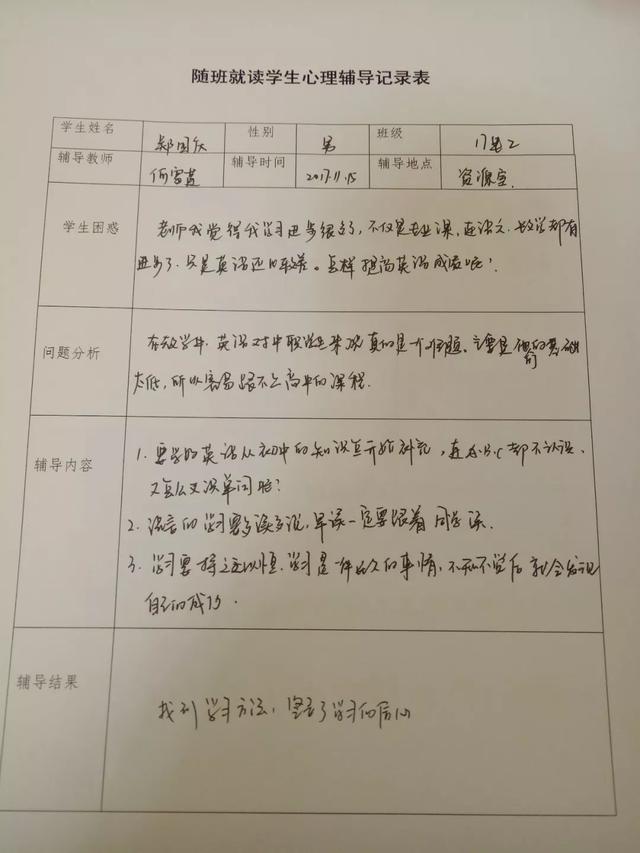 随班就读学生心理辅导记录表
学生姓名 郑国庆 性别 男 班级 17
辅导教师 何雪 辅导时间 2017.11.15 辅导地点 资源室.
学生困惑 老师我觉得我学习进步很多了,不仅是专业课,连语文.数学都有
进步了.只是英语还比较差。怎样提高英语成绩呢?
问题分析 在教学中.英语对中职学生来说真的是个问题。主要是他们的基础
太低,所以容易跟不上高中的课程.
辅导内容 1. 要学好英语从初中的知识点开始补充,连ABC都不认识.
又怎么又识单词呢?
2. 语言的学习要多读多说,早读一定要跟着同学读.
3. 学习要持之以恒.学习是一件长久的事情,不知不觉后就会发现
自己的成功.
辅导结果 找到学习方法,坚定了学习的信心